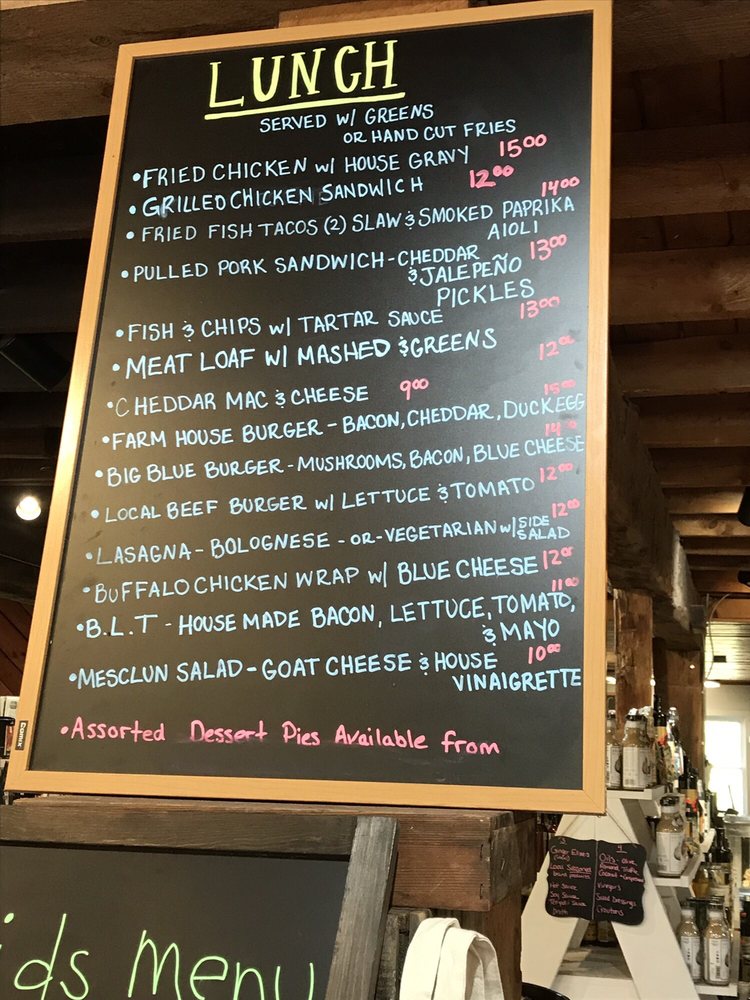 LUNCH
SERVED W/ GREENS
OR HAND CUT FRIES
•FRIED CHICKEN W/ HOUSE GRAVY 15⁰⁰
•GRILLED CHICKEN SANDWICH 12⁰⁰
•FRIED FISH TACOS (2) SLAW & SMOKED PAPRIKA 14⁰⁰
AIOLI
•PULLED PORK SANDWICH-CHEDDAR 13⁰⁰
& JALEPEÑO
PICKLES
•FISH & CHIPS W/ TARTAR SAUCE 13⁰⁰
•MEAT LOAF W/ MASHED & GREENS 12⁰⁰
•CHEDDAR MAC & CHEESE 9⁰⁰
•FARM HOUSE BURGER - BACON, CHEDDAR, DUCK EGG 15⁰⁰
•BIG BLUE BURGER - MUSHROOMS, BACON, BLUE CHEESE 14⁰⁰
•LOCAL BEEF BURGER W/ LETTUCE & TOMATO 12⁰⁰
•LASAGNA - BOLOGNESE - OR - VEGETARIAN W/ SIDE 12⁰⁰
SALAD
•BUFFALO CHICKEN WRAP W/ BLUE CHEESE 12⁰⁰
•B.L.T - HOUSE MADE BACON, LETTUCE, TOMATO, 11⁰⁰
& MAYO
•MESCLUN SALAD - GOAT CHEESE & HOUSE 10⁰⁰
VINAIGRETTE
•Assorted Dessert Pies Available from
comix
ids Menu
3
Local Seasoned
Hot Sauce
Soy Sauce
Teriyaki Sauce
Broth
4
Oils - Olive
Almond, Truffle
Coconut - Grapeseed
Vinegars
Salad Dressings
Croutons